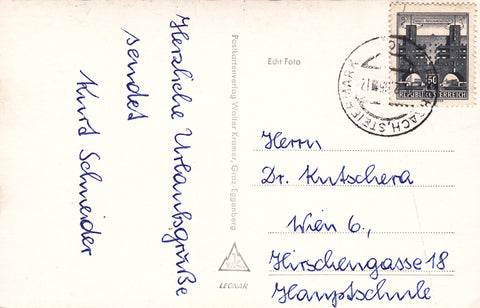 Herzliche Urlaubsgrüße
sendet
Kurt Schneider
Postkartenverlag Walter Kramer, Graz-Eggenberg
Echt Foto
LEONAR
REPUBLIK ÖSTERREICH
BACH, STEIERMARK
Herrn
Dr. Kutschera
Wien 6.,
Hirschengasse 18
Hauptschule